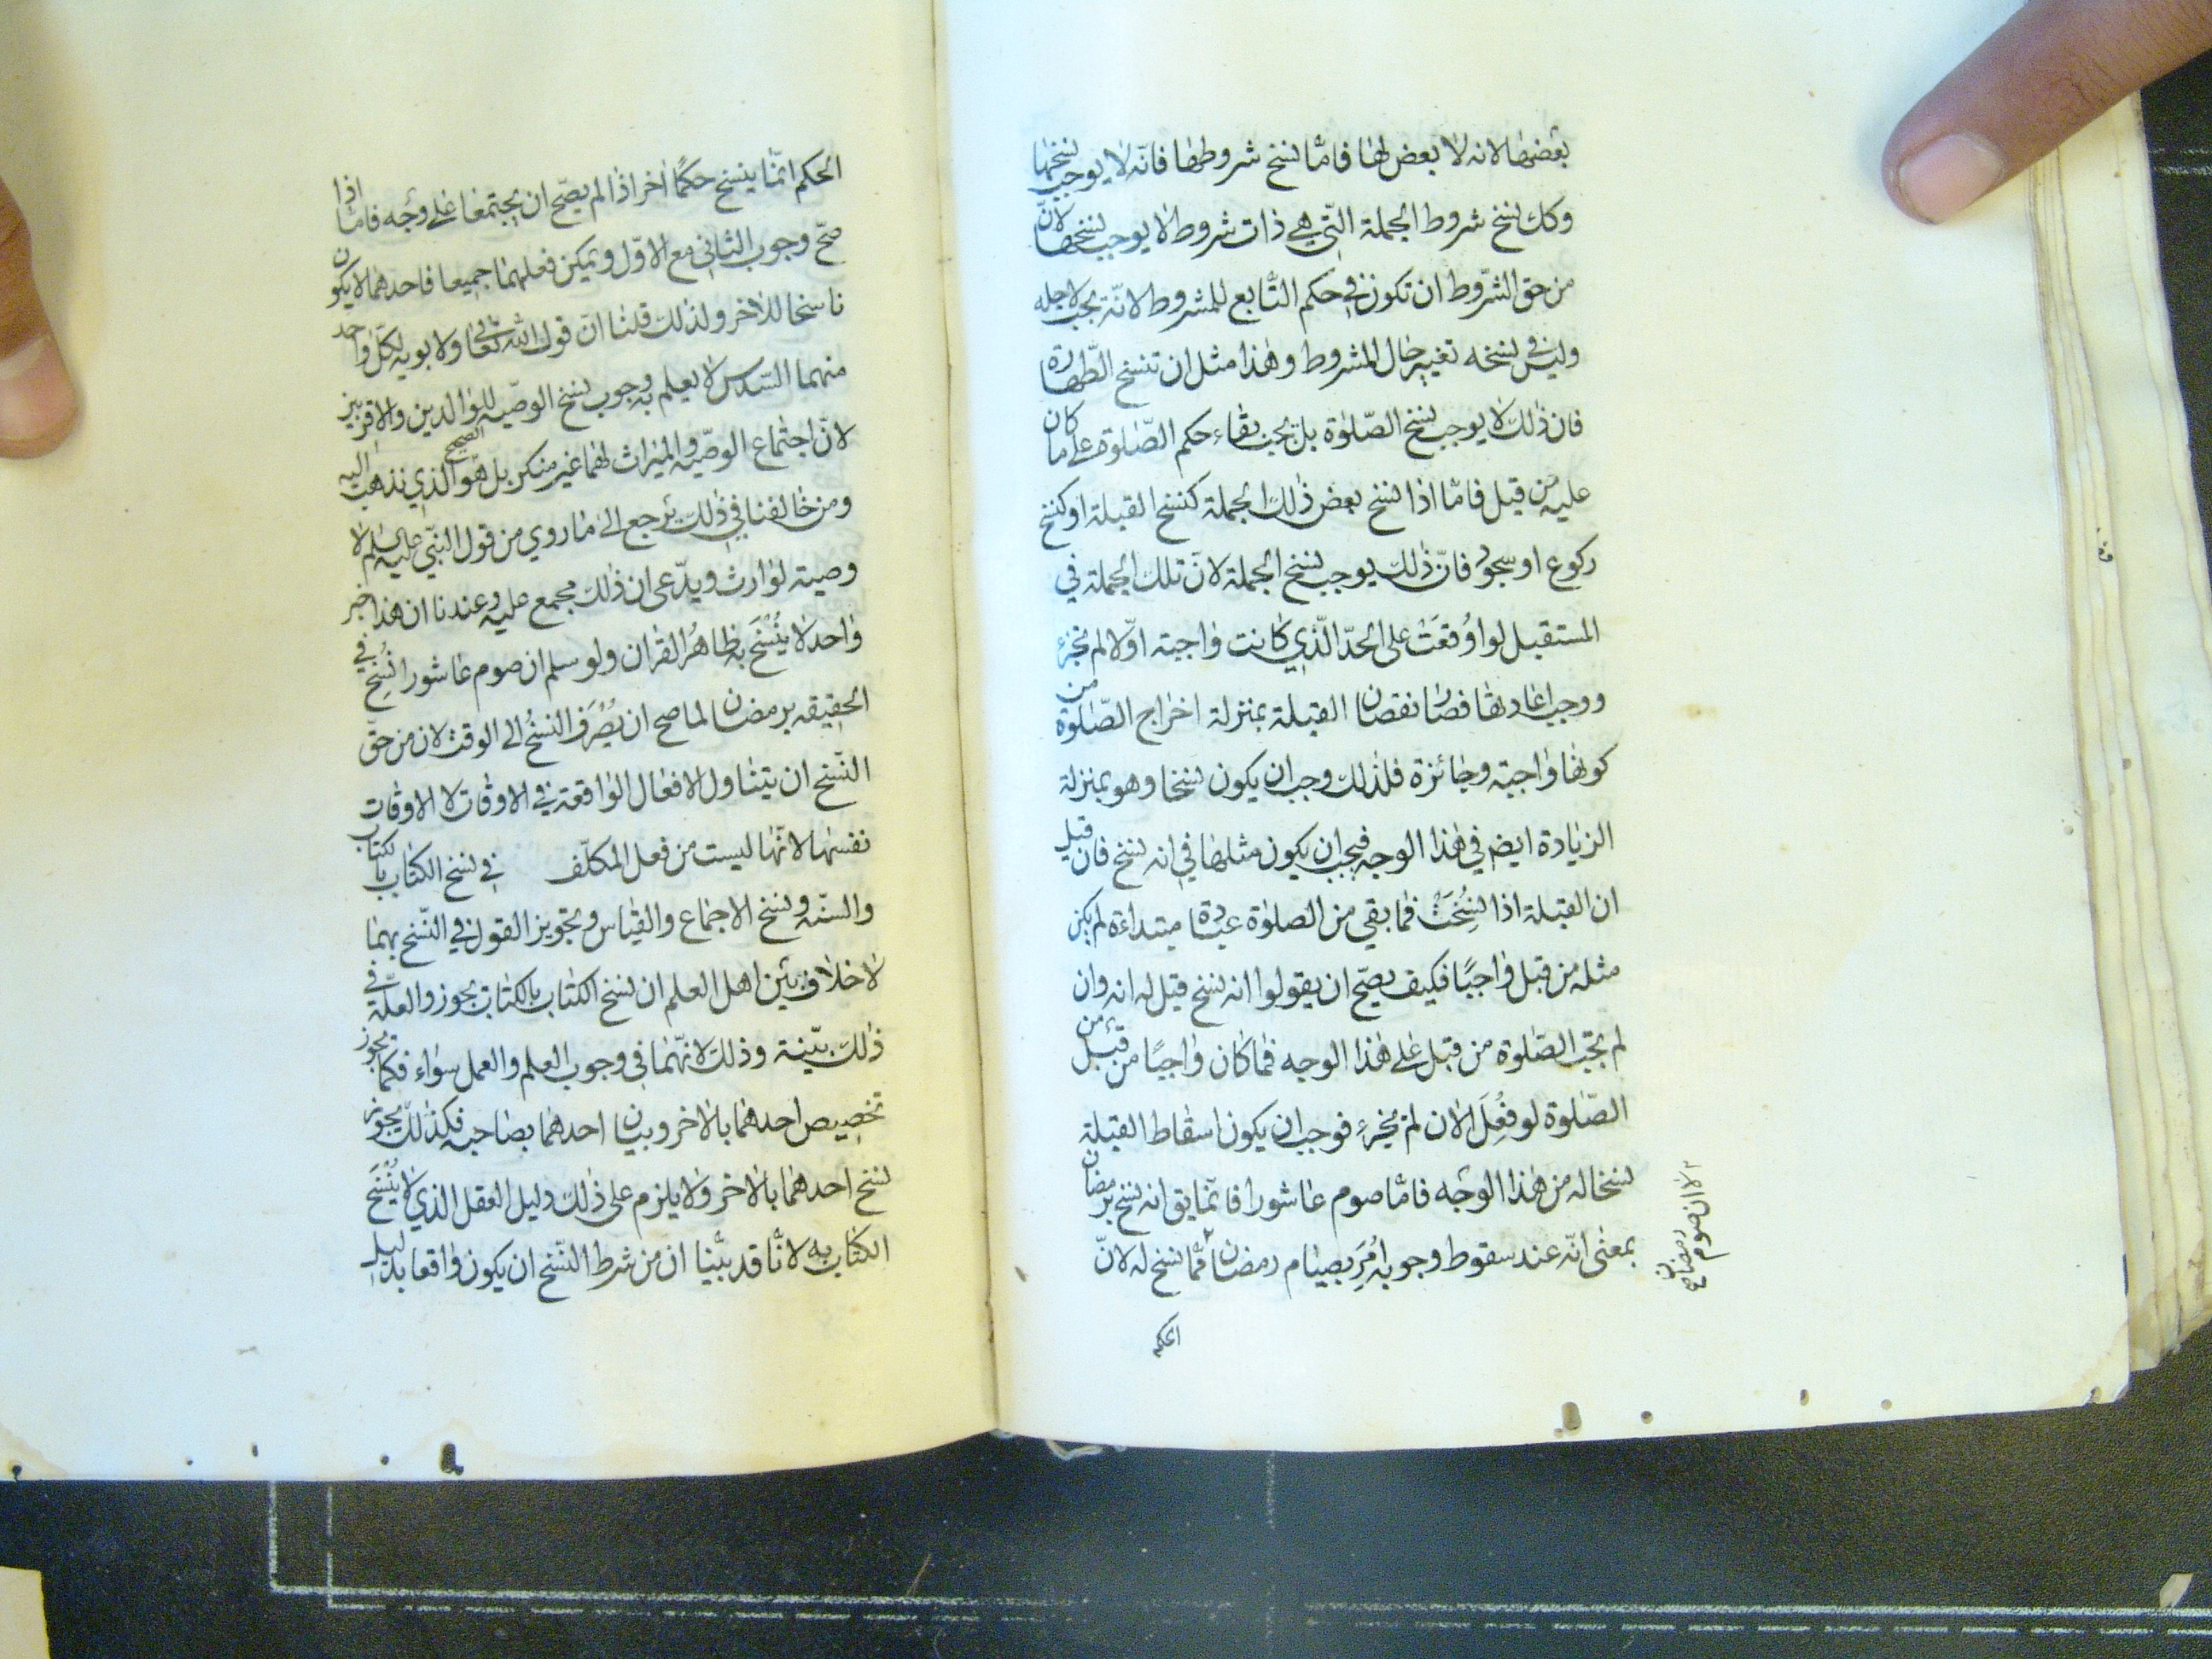 بعضها لانه لا بعض لها فامّا نسخ شروطها فانّه لا يوجب نسخها
وكك نسخ شروط الجملة الّتي هي ذات شروط لا يوجب نسخها لانّ
من حق الشّروط ان تكون في حكم التّابع للمشروط لانّه يجب لاجله
وليس في نسخه تغيير حال المشروط وهذا مثل ان تنسخ الطّهارة
فان ذلك لا يوجب نسخ الصّلوة بل يجب بقاء حكم الصّلوة على ما كان
عليه من قبل فامّا اذا نسخ بعض ذلك الجملة كنسخ القبلة او كنسخ
ركوع او سجود فانّ ذلك يوجب نسخ الجملة لانّ تلك الجملة في
المستقبل لو اُوقعَتْ على الحدّ الّذي كانت واجبة اوّلا لم تجزء
ووجب اعادتها فصار نقصان القبلة بمنزلة اخراج الصّلوة من
كونها واجبة وجائزة فلذلك وجب ان يكون نسخا وهو بمنزلة
الزيادة ايض في هذا الوجه فيجب ان يكون مثلها في انه نسخ فان قيل
ان القبلة اذا نُسِخَتْ فما بقي من الصلوة عبادة مبتداءة لم يكن
مثله من قبل واجبًا فكيف يصّح ان يقولوا انه نسخ قيل له انه وان
لم تجب الصّلوة من قبل على هذا الوجه فما كان واجبًا من قبل من
الصّلوة لو فُعِلَ الان لم يجزء فوجب ان يكون اسقاط القبلة
نسخا له من هذا الوجه فامّا صوم عاشورا فانّما يق انه نسخ برمضان
بمعنى انّه عند سقوط وجوبه اُمِرَ بصيام رمضان ممّا نسخ له لانّ
لا ان صوم رمضان صح
الحكم
الحكم انّما ينسخ حكمًا اخر اذا لم يصّح ان يجتمعا على وجه فامّا اذا
صّح وجوب الثاني مع الاوّل ويمكن فعلهما جميعا فاحدهما لا يكون
ناسخا للاخر ولذلك قلنا انّ قول الله تعالى ولابويه لكلّ واحد
منهما السّدس لا يعلم به وجوب نسخ الوصيّه للوالدين والاقربين
لانّ اجتماع الوصيّه والميراث لهما غير منكر بل هو الصحيح الذي نذهب اليه
ومن خالفنا في ذلك يرجع الى ما روي من قول النبّي عليه السلم لا
وصية لوارث ويدّعى ان ذلك مجمع عليه وعندنا ان هذا خبر
واحد لا يُنْسَخ به ظاهرُ القران ولو سلم ان صوم عاشورا نُسِخ في
الحقيقه برمضان لما صح ان يُصْرَف النسْخُ الى الوقت لان من حقّ
النّسخ ان يتناول الافعال الواقعة في الاوقات لا الاوقات
نفسها لانّها ليست من فعل المكلّف في نسخ الكتاب بالكتاب
والسنّه ونسخ الاجماع والقياس وتجويز القول في النّسخ بهما
لا خلاف بين اهل العلم ان نسخ الكتاب بالكتاب يجوز والعلّة في
ذلك بيّنة وذلك لانّهما في وجوب العلم والعمل سواء فكما يجوز
تخصيص احدهما بالاخر وبيان احدهما بصاحبه فكذلك يجوز
نسخ احدهما بالاخر ولا يلزم على ذلك دليل العقل الذي لا يُنْسَخ
الكتاب به لانّا قد بيّنا ان من شرط النّسخ ان يكون واقعا بدليل